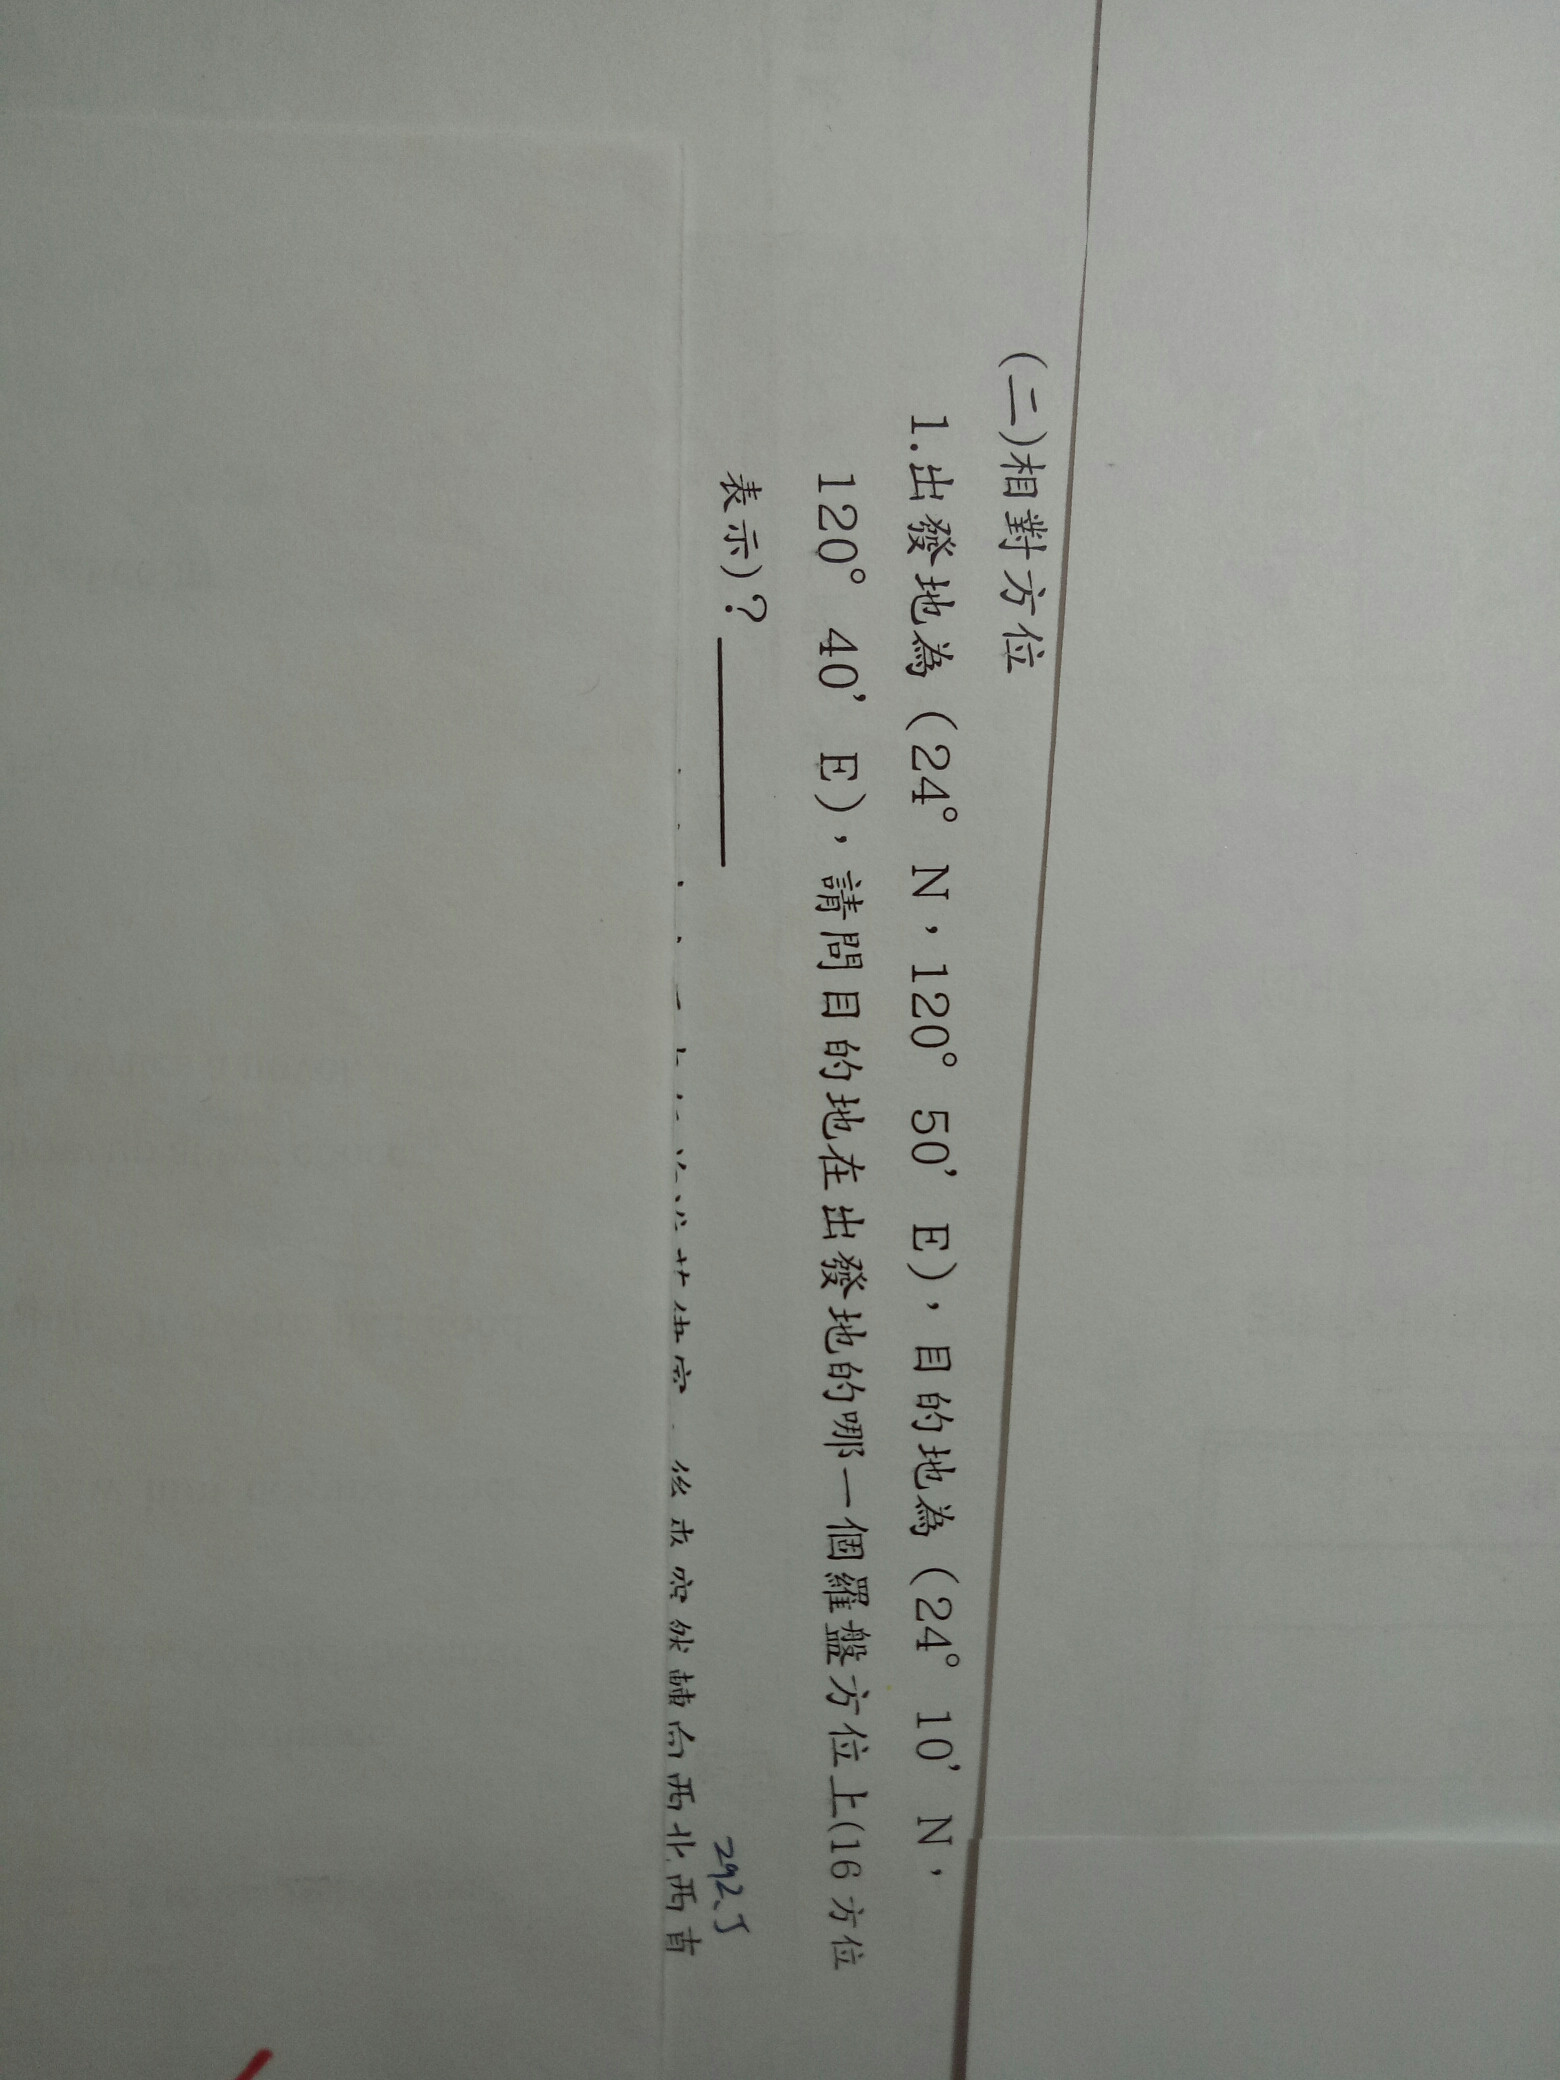 (二)相對方位
1.出發地為（24° N，120° 50’ E)，目的地為（24° 10’ N，
120° 40’ E)，請問目的地在出發地的哪一個羅盤方位上(16 方位
表示)？
292.5
向西北西